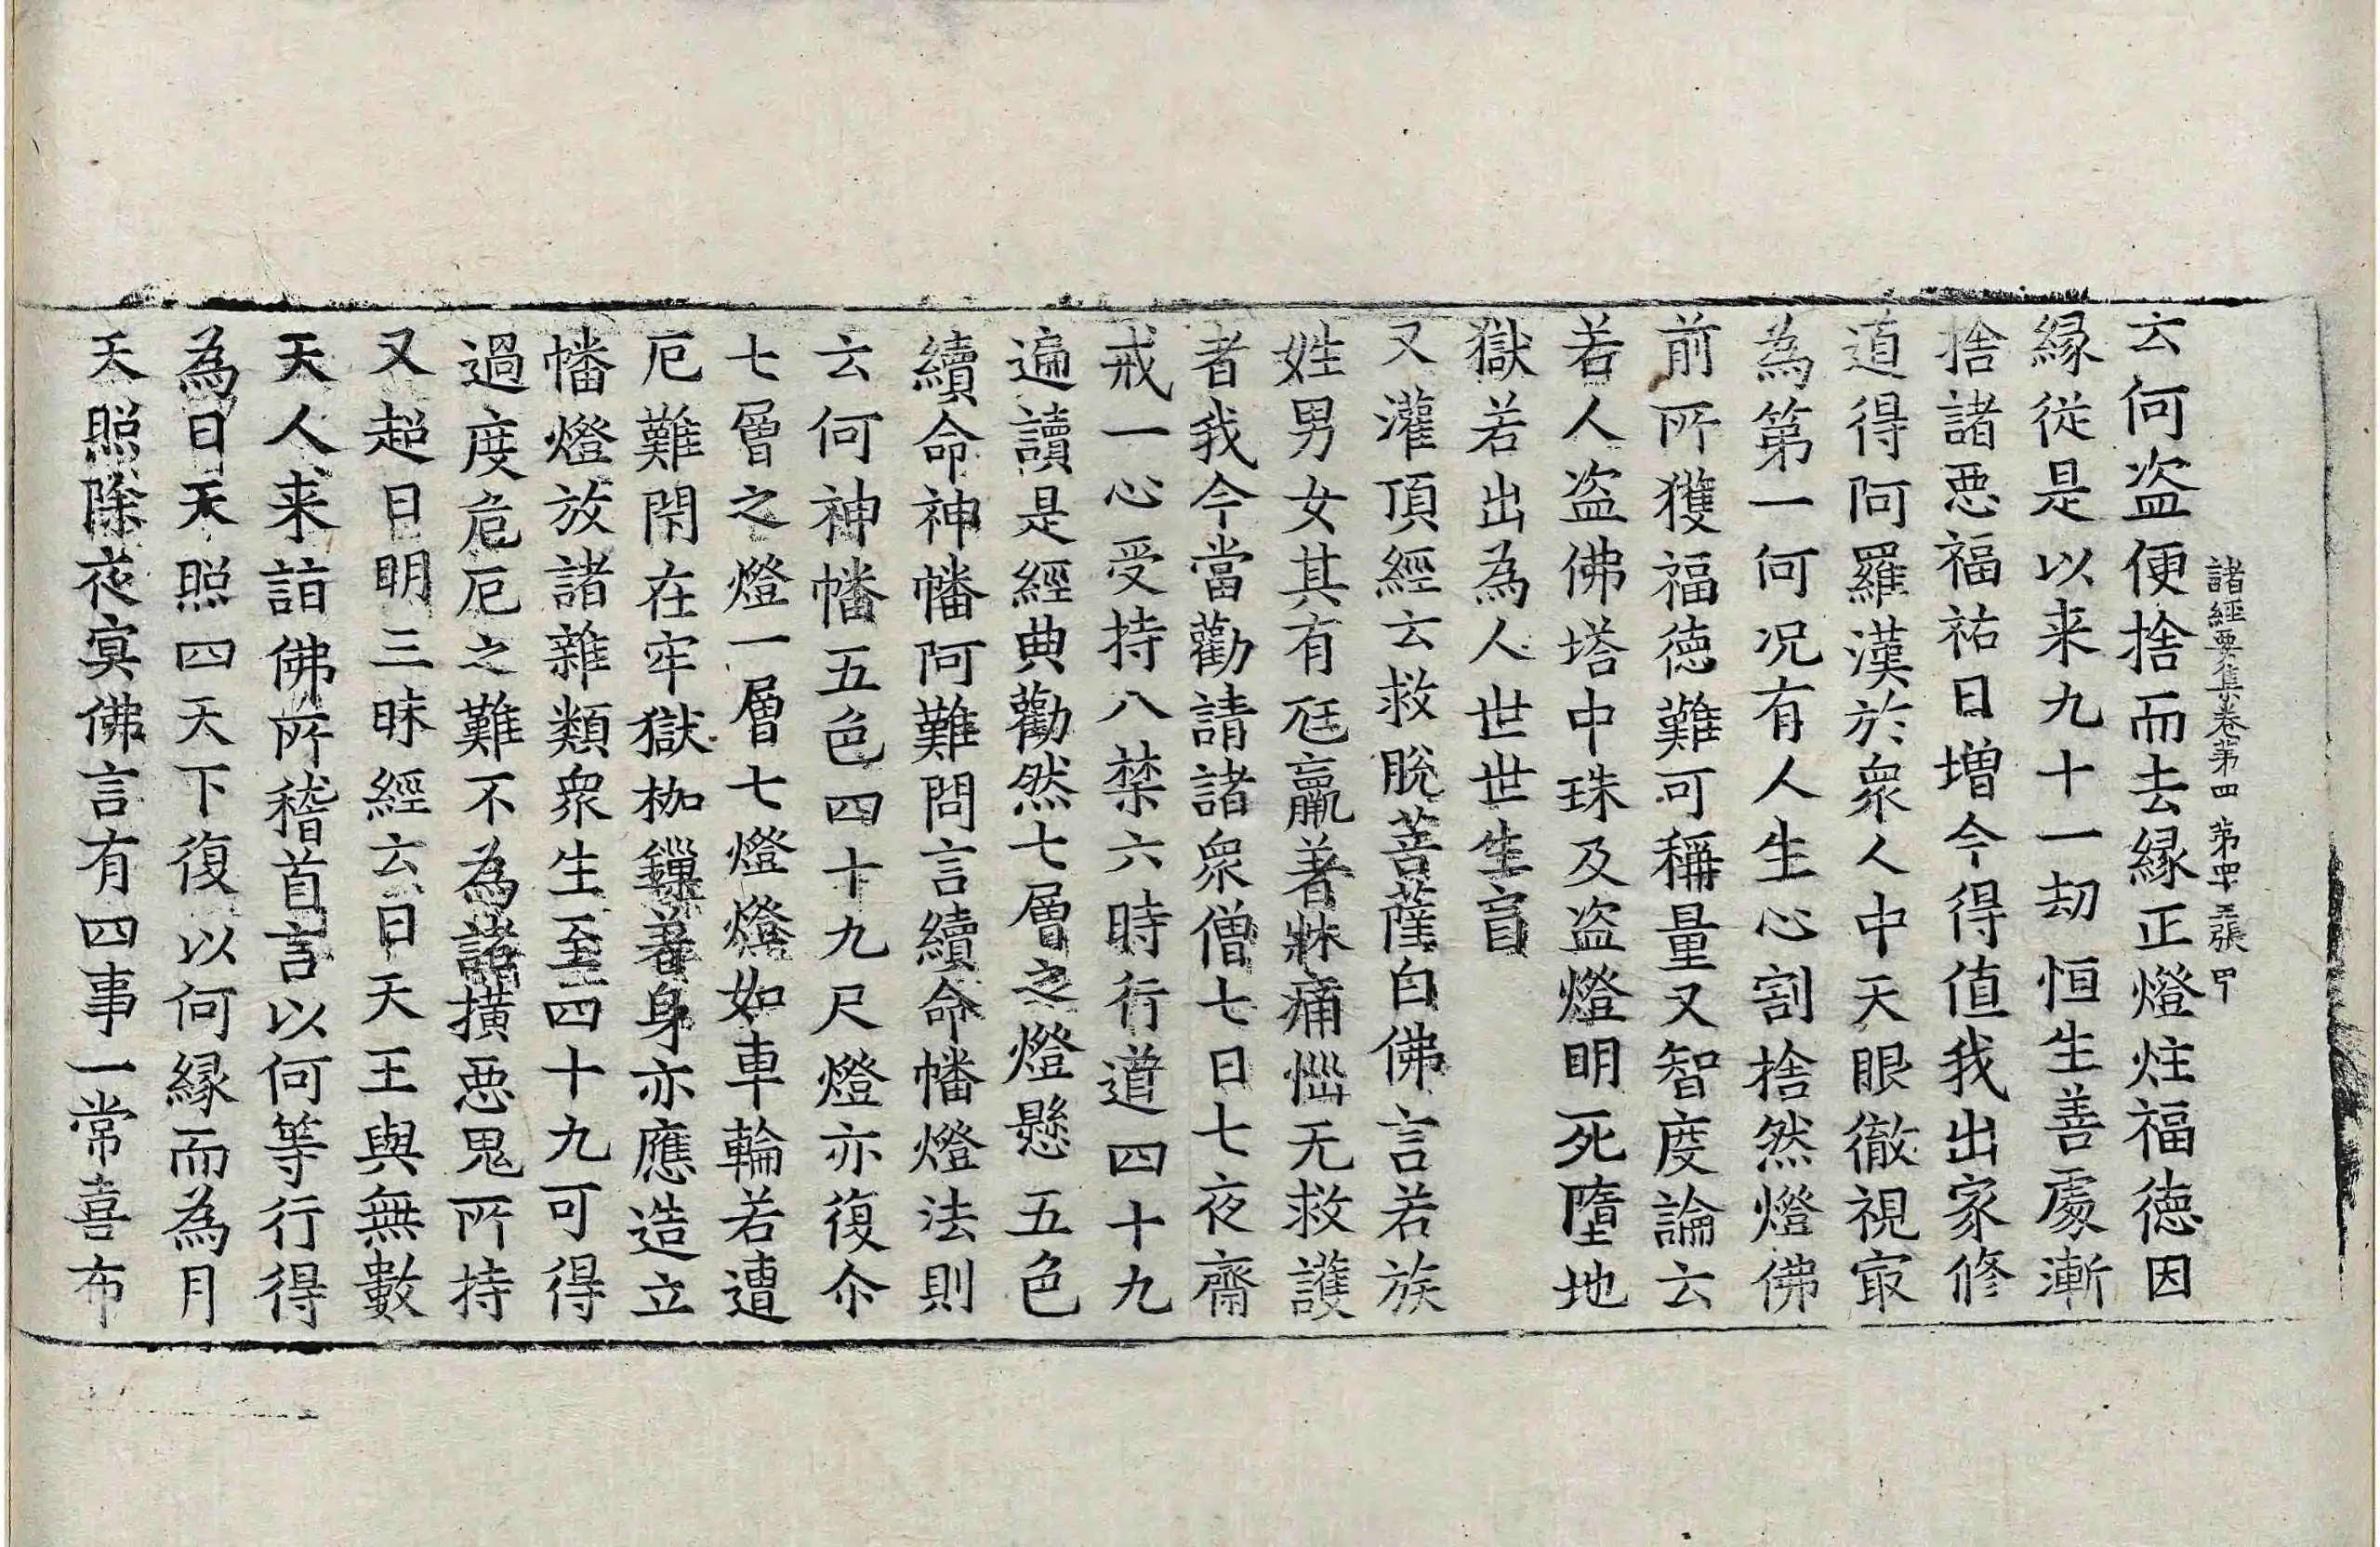 諸經要集卷第四 第四十五張 甲
云何盗便捨而去縁正燈炷福徳因
縁從是以来九十一劫恒生善處漸
捨諸惡福祐日增今得值我出家修
道得阿羅漢於衆人中天眼徹視冣
為第一何况有人生心割捨然燈佛
前所獲福徳難可稱量又智度論云
若人盗佛塔中珠及盗燈明死墮地
獄若出為人世世生盲
又灌頂經云救脫菩薩白佛言若族
姓男女其有尫羸著牀痛惱无救護
者我今當勸請諸衆僧七日七夜齋
戒一心受持八禁六時行道四十九
遍讀是經典勸然七層之燈懸五色
續命神幡阿難問言續命幡燈法則
云何神幡五色四十九尺燈亦復尒
七層之燈一層七燈燈如車輪若遭
厄難閇在牢獄枷鏁著身亦應造立
幡燈放諸雜類衆生至四十九可得
過度危厄之難不為諸橫惡鬼所持
又超日明三昧經云日天王與無數
天人来詣佛所稽首言以何等行得
為日天照四天下復以何縁而為月
天照除夜㝠佛言有四事一常喜布